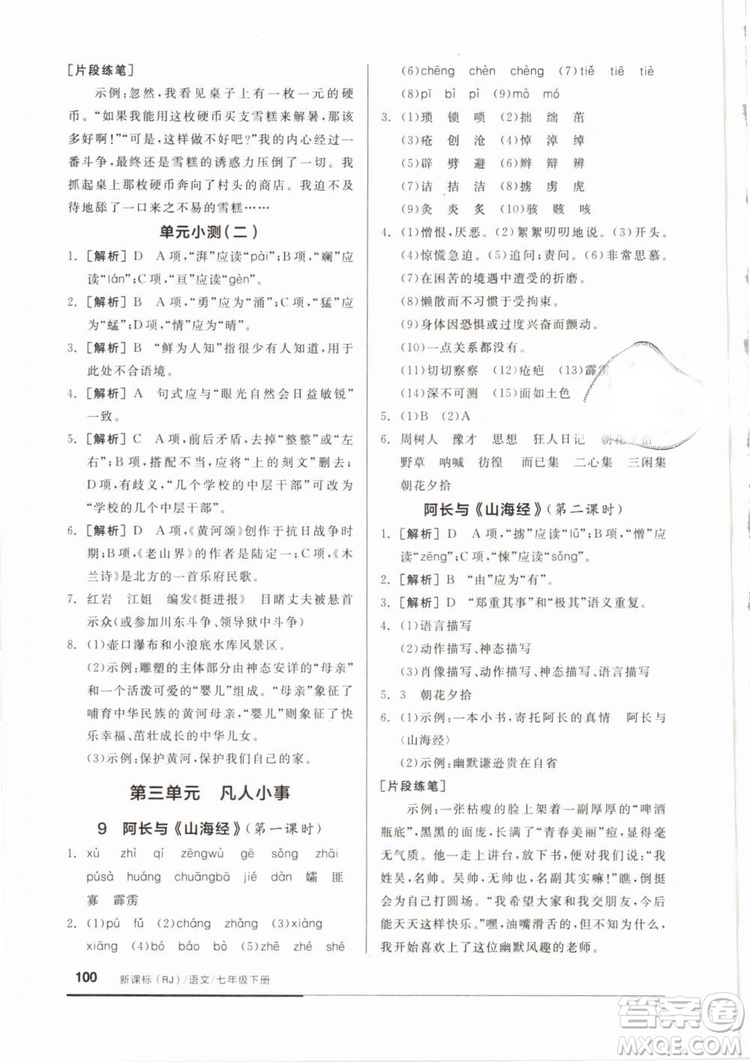 [片段练笔]
示例:忽然,我看见桌子上有一枚一元的硬
币。“如果我能用这枚硬币买支雪糕来解暑,那该
多好啊!”“可是,这样做好吧?”我的内心经过一
番斗争,最终还是雪糕的诱惑力压倒了一切。我
抓起桌上那枚硬币奔向了村头的商店。迫不及
待地舔了一口来之不易的雪糕……
单元小测(二)
1. [解析] D A项,“湃”应读“pài”;B项,“斓”应
读“lán”;C项,“亘”应读“gèn”。
2. [解析] D A项,“勇”应为“涌”;B项,“猛”应
为“蜢”;D项,“情”应为“晴”。
3. [解析] B “鲜为人知”指很少有人知道。因
此处不合语境。
4. [解析] A 句式应与“眼光自然会日益敏锐”
一致。
5. [解析] D A项,前后矛盾,去掉“整整”或“左
右”;B项,语序不当,“上的刻文”删掉“的”;C
项,有歧义,“几个学校的中层干部”改为
“学校的几个中层干部”。
6. [解析] D A项,《黄河颂》创作于抗日战争时
期;B项,《老山界》的作者是陆定一;C项,《木
兰诗》是北方的一首乐府民歌。
7. 红岩 江姐 编发《挺进报》 目睹丈夫的首级
示众(或参加川东斗争、领导狱中斗争)
8. (1)壶口瀑布和小浪底水库风景区。
(2)示例:雕塑的主体部分由神态安详的“母亲”
和一个活泼可爱的“婴儿”组成。“母亲”象征了
哺育中华民族的黄河母亲,“婴儿”则象征了快
乐幸福、茁壮成长的中华儿女。
(3)示例:保护黄河,保护我们的母亲河!
第三单元 凡人小事
9 阿长与《山海经》(第一课时)
1. xù zhì qí zēngwù gē sǒng zhāi
púsà huáng chuāngbā jié dàn 孀 匪
寡 霹雳
2. (1)pú fǔ (2)cháng zhǎng (3)xiàng
xiāng (4)bó báo bò (5)zhē zhé shé
(6)chēng chèn chèng (7)tiě tiē tiè
(8)pī bì pì (9)mò mó
3. (1)琐 锁 唢 (2)拙 绌 茁
(3)疮 创 沧 (4)悼 淖 绰
(5)辟 劈 避 (6)辨 辫 辩
(7)诘 拮 洁 (8)掳 虏 虎
(9)灸 炎 炙 (10)骇 骸 咳
4. (1)憎恨,厌恶。(2)絮絮叨叨地说。(3)开头。
(4)惊慌急迫。(5)追问;责问。(6)非常思慕。
(7)在困苦的境遇中遇到的折磨。
(8)懒散而不习惯于受拘束。
(9)身体因恐惧或过度兴奋而颤动。
(10)一点关系都没有。
(11)切切察察 (12)疮疤 (13)霹
(14)深不可测 (15)面如土色
5. (1)B (2)A
6. 周树人 豫才 思想 狂人日记 朝花夕拾
野草 呐喊 彷徨 而已集 二心集 三闲集
朝花夕拾
阿长与《山海经》(第二课时)
1. [解析] D A项,“掳”应读“lǔ”,B项,“憎”应
读“zēng”;C项,“悚”应读“sǒng”。
2. [解析] B “由”应为“尤”。
3. [解析] D “郑重其事”和“极其”语义重复。
4. (1)语言描写
(2)动作描写、神态描写
(3)肖像描写、神态描写、动作描写、语言描写
5. 3 朝花夕拾
6. (1)示例:一本小书,寄托阿长的真情 阿长与
〈山海经〉
(2)示例:幽默谦逊贵在自省
[片段练笔]
示例:一张枯瘦的脸上架着一副厚厚的“啤酒
瓶底”,黑黑的面庞,几乎与“青春美丽”痘,毫
无气质。他一走上讲台,放下书,便开口道:“我
姓吴,名帅。吴帅,吴帅,的确是名副其实嘛!”瞧,他
自己打上了圆场。“希望大家和我一起学习,今
后能天天像这样快乐。”嘿,油嘴滑舌,不知为什么,
我似乎开始喜欢上了这位幽默风趣的老师。
100 新课标(RJ)/语文/七年级下册
答案圈
MXQE.COM